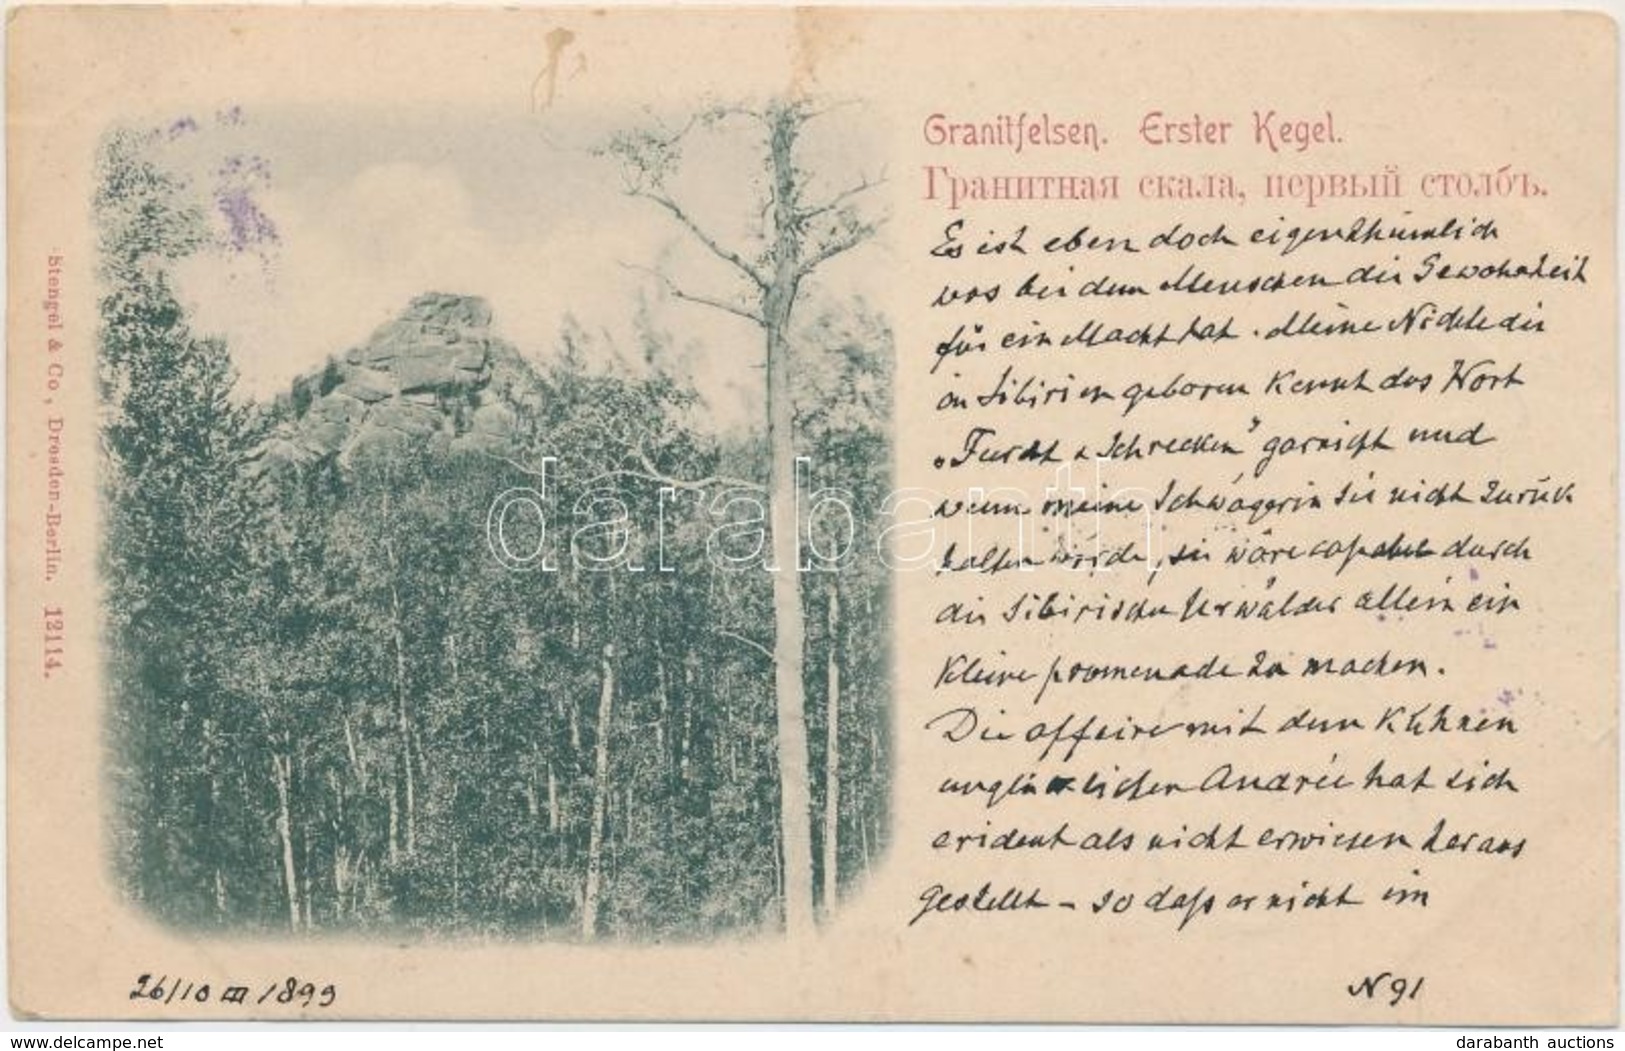 Granitfelsen. Erster Kegel.
Гранитная скала, первый столбъ.
Es ist eben doch eigenthümlich
was bei dem Menschen die Gewohnheit
für ein Macht hat. Meine Nichte die
in Sibirien geboren kennt das Wort
„Furcht & Schrecken" garnicht und
wenn meine Schwägerin sie nicht zurück
halten würde, sie wäre capabel durch
die Sibirischen Urwälder allein ein
kleine promenade zu machen.
Die affeire mit dem Kühnen
unglücklichen Andrée hat sich
evident als nicht erwiesen heraus
gestellt - so daß er nicht im
26/10 III 1899
N 91
Stengel & Co., Dresden-Berlin. 12114.
darabanth
www.delcampe.net
darabanth auctions